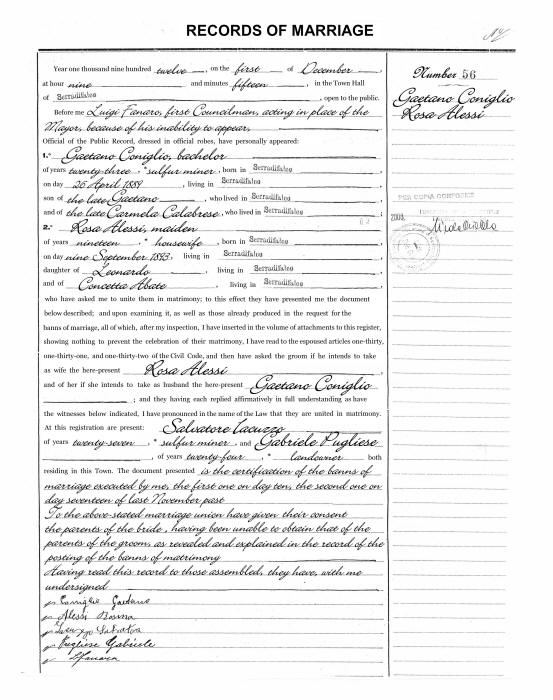 RECORDS OF MARRIAGE
Year one thousand nine hundred twelve, on the first of December,
at hour nine and minutes fifteen, in the Town Hall
of Serradifalco, open to the public.
Before me Luigi Fanaro, first Councilman, acting in place of the
Mayor, because of his inability to appear,
Official of the Public Record, dressed in official robes, have personally appeared:
1.° Gaetano Coniglio, bachelor
of years twenty-three, * sulfur miner, born in Serradifalco
on day 26 April 1889, living in Serradifalco
son of the late Gaetano, who lived in Serradifalco
and of the late Carmela Calabrese, who lived in Serradifalco;
2.° Rosa Alessi, maiden
of years nineteen, * housewife, born in Serradifalco
on day nine September 1893, living in Serradifalco
daughter of Leonardo, living in Serradifalco
and of Concetta Abate, living in Serradifalco
who have asked me to unite them in matrimony; to this effect they have presented me the document
below described; and upon examining it, as well as those already produced in the request for the
banns of marriage, all of which, after my inspection, I have inserted in the volume of attachments to this register,
showing nothing to prevent the celebration of their matrimony, I have read to the espoused articles one-thirty,
one-thirty-one, and one-thirty-two of the Civil Code, and then have asked the groom if he intends to take
as wife the here-present Rosa Alessi,
and of her if she intends to take as husband the here-present Gaetano Coniglio
; and they having each replied affirmatively in full understanding as have
the witnesses below indicated, I have pronounced in the name of the Law that they are united in matrimony.
At this registration are present: Salvatore Iacuzzo
of years twenty-seven, * sulfur miner, and Gabriele Pugliese
, of years twenty-four, * landowner both
residing in this Town. The document presented is the certification of the banns of
marriage executed by me, the first one on day ten, the second one on
day seventeen of last November past
To the above-stated marriage union have given their consent
the parents of the bride, having been unable to obtain that of the
parents of the groom, as revealed and explained in the record of the
posting of the banns of matrimony
Having read this record to those assembled, they have, with me
undersigned
Coniglio Gaetano
Alessi Rosina
Salvatore
Pugliese Gabriele
Number 56
Gaetano Coniglio
Rosa Alessi
PER COPIA CONFORME